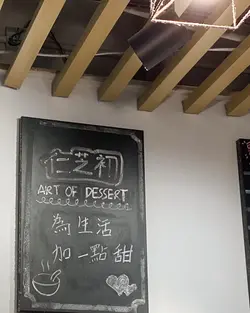 仁芝初
ART OF DESSERT
為生活
加一點甜